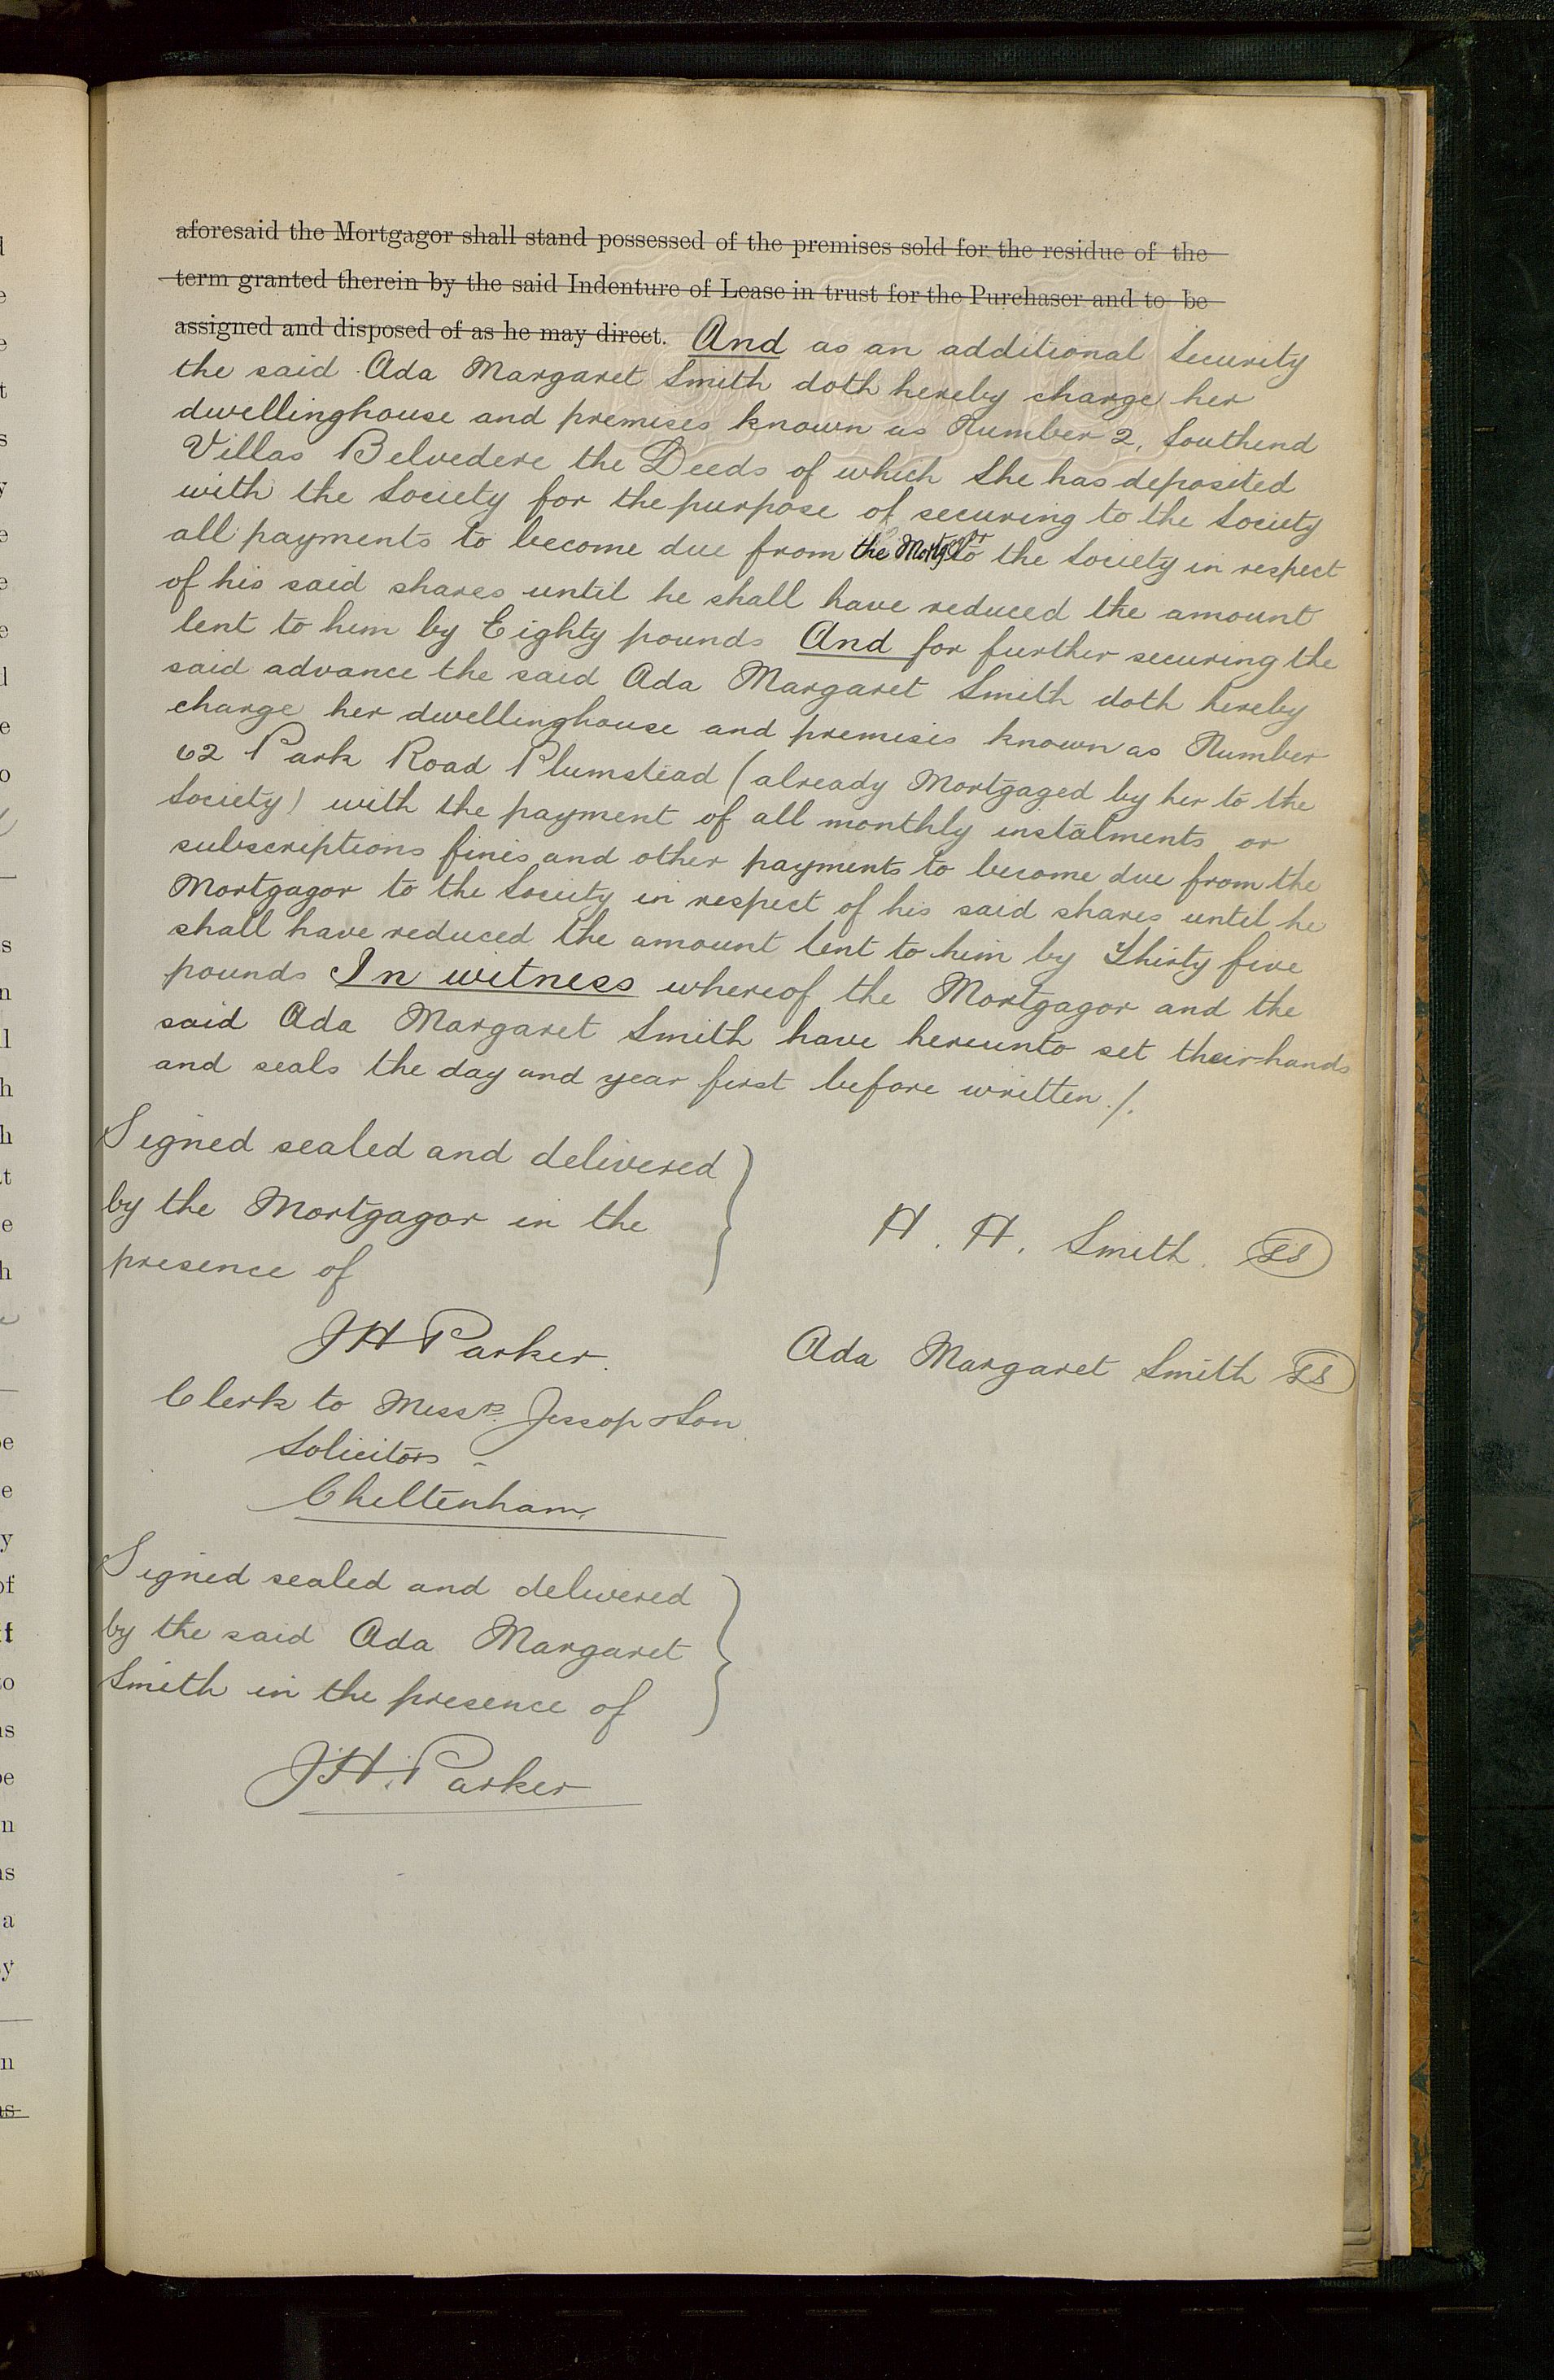 aforesaid the Mortgagor shall stand possessed of the premises sold for the residue of the
term granted therein by the said Indenture of Lease in trust for the Purchaser and to be
assigned and disposed of as he may direct. And as an additional Security
the said Ada Margaret Smith doth hereby charge her
dwellinghouse and premises known as Number 2, Southend
Villas Belvedere the Deeds of which She has deposited
with the Society for the purpose of securing to the Society
all payments to become due from the Mortgor to the Society in respect
of his said shares until he shall have reduced the amount
lent to him by Eighty pounds And for further securing the
said advance the said Ada Margaret Smith doth hereby
charge her dwellinghouse and premises known as Number
62 Park Road Plumstead (already Mortgaged by her to the
Society) with the payment of all monthly instalments or
subscriptions fines and other payments to become due from the
Mortgagor to the Society in respect of his said shares until he
shall have reduced the amount lent to him by Thirty five
pounds In witness whereof the Mortgagor and the
said Ada Margaret Smith have hereunto set their hands
and seals the day and year first before written./.
Signed sealed and delivered
by the Mortgagor in the
presence of
H. H. Smith. LS
JH Parker.
Ada Margaret Smith LS
Clerk to Messrs. Jessop & Son
Solicitors
Cheltenham
Signed sealed and delivered
by the said Ada Margaret
Smith in the presence of
J.H. Parker